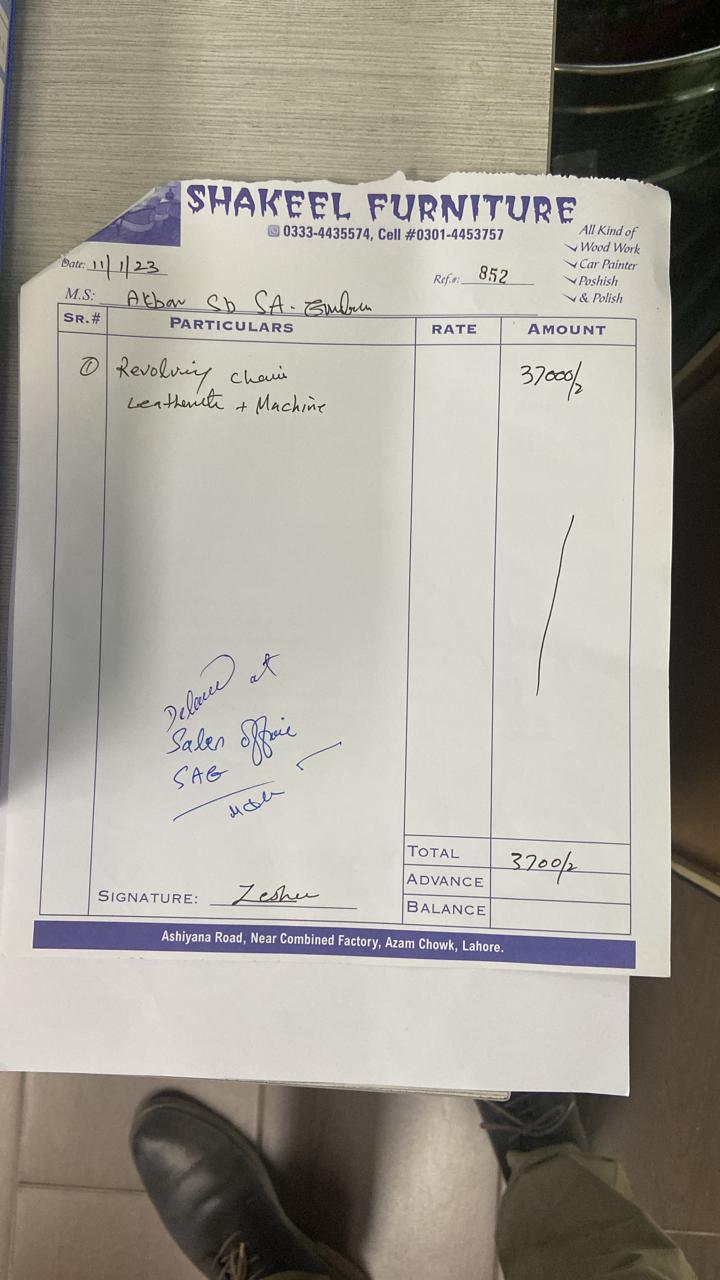 SHAKEEL FURNITURE
0333-4435574, Cell #0301-4453757
All Kind of
Wood Work
Car Painter
Poshish
& Polish
Date: 11/1/23
Ref.#: 852
M.S: Akbar Sb SA-
SR.# PARTICULARS RATE AMOUNT
① Revolving Chair 37000/2
+ Machine
at
Sales office
SAG
TOTAL 3700/2
ADVANCE
SIGNATURE:
BALANCE
Ashiyana Road, Near Combined Factory, Azam Chowk, Lahore.